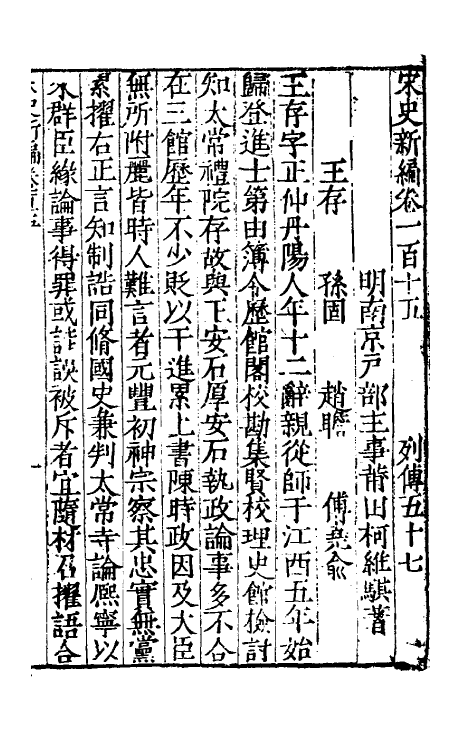 宋史新編卷一百十五 列傳五十七
明南京戶部主事莆田柯維騏著
王存 孫固 趙瞻 傅堯俞
王存字正仲丹陽人年十二辭親從師于江西五年始
歸登進士第由簿令歷館閣校勘集賢校理史館檢討
知太常禮院存故與王安石厚安石執政論事多不合
在三館歷年不少貶以干進累上書陳時政因及大臣
無所附麗皆時人難言者元豐初神宗察其忠實無黨
累擢右正言知制誥同脩國史兼判太常寺論熙寧以
來群臣緣論事得罪或詿誤被斥者宜隨材召擢語合